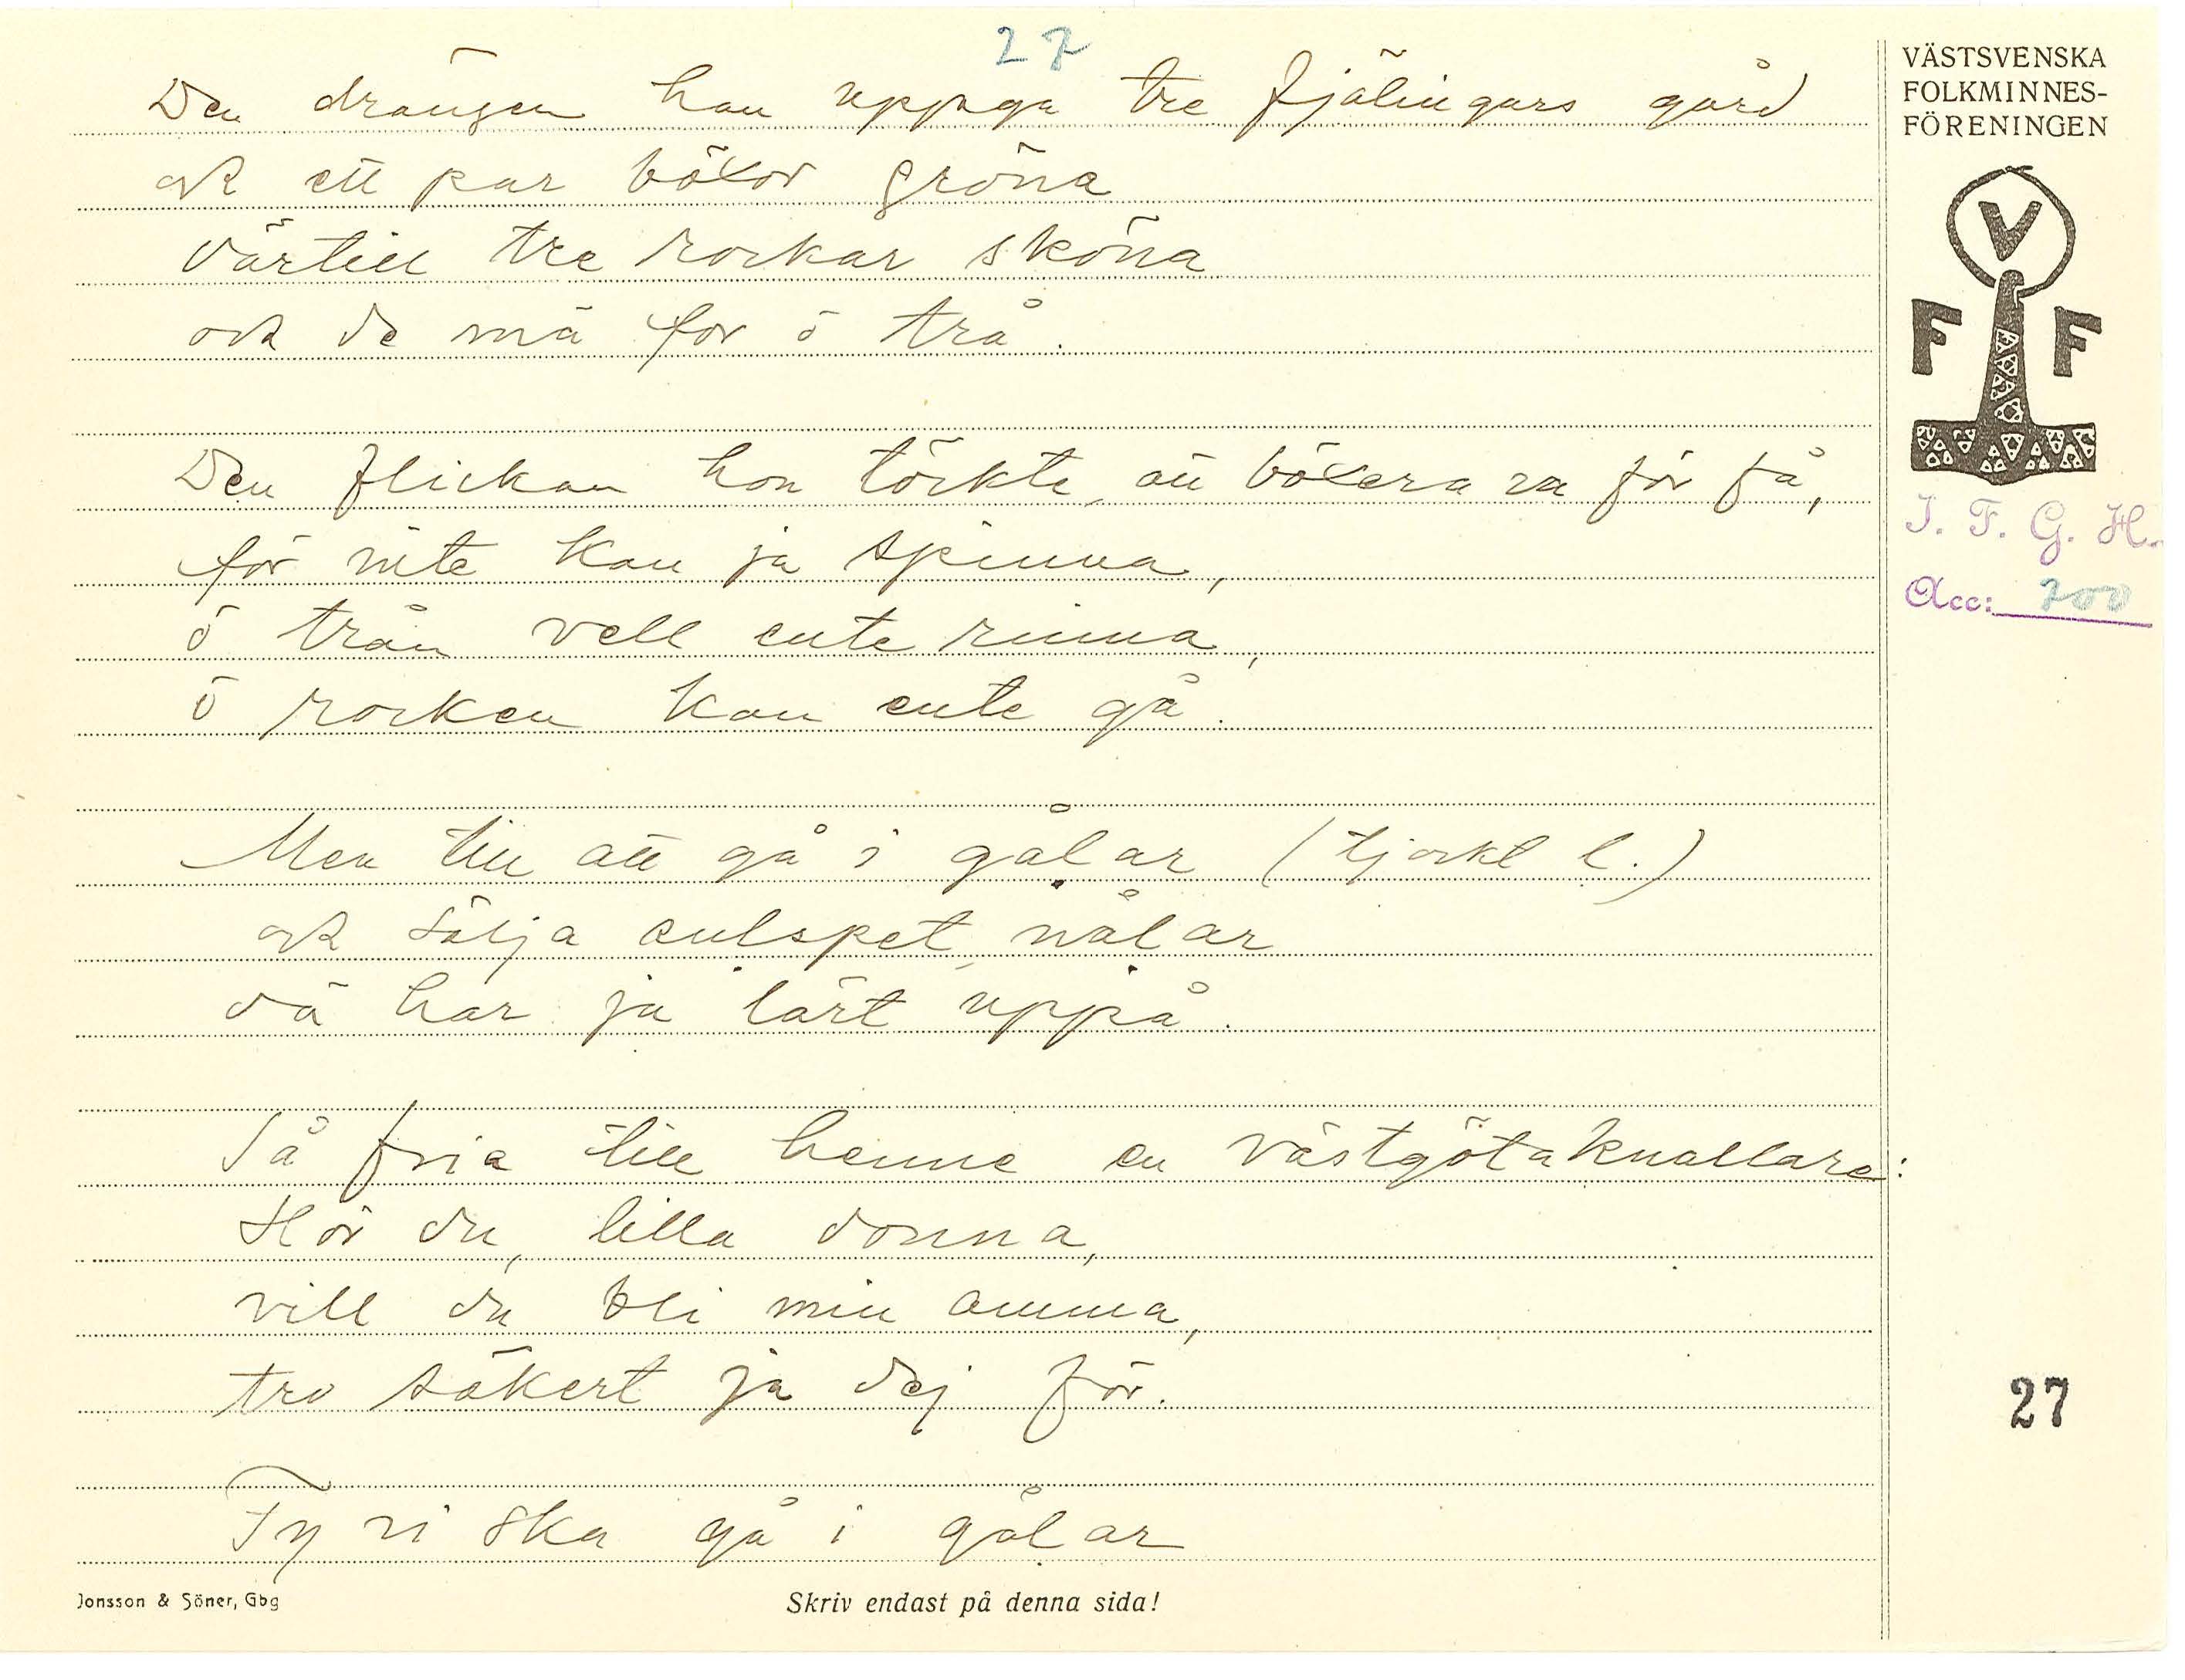 27
Den drängen han uppga tre fjälingars gård
ock ett par böxor gröna
därtill tre rockar sköna
ock de mä for ö trå.
Den flickan hon töckte, att böxera va för få,
för nite kan ja spinna,
ö trån vell ente rinna,
ö rocken kan ente gå.
Men till att gå i gålar (tjockt l.)
ock sälja eulspet, nålar
dä har ja lärt uppå.
Så fria till henne en västgötaknallare:
Hör du, lilla donna,
vill du bli min amma,
tro säkert ja dej för.
Ty vi ska gå i gålar
Jonsson & Söner, Gbg
Skriv endast på denna sida!
VÄSTSVENSKA
FOLKMINNES-
FÖRENINGEN
V
F F
I. F. G. H.
Acc: 700
27